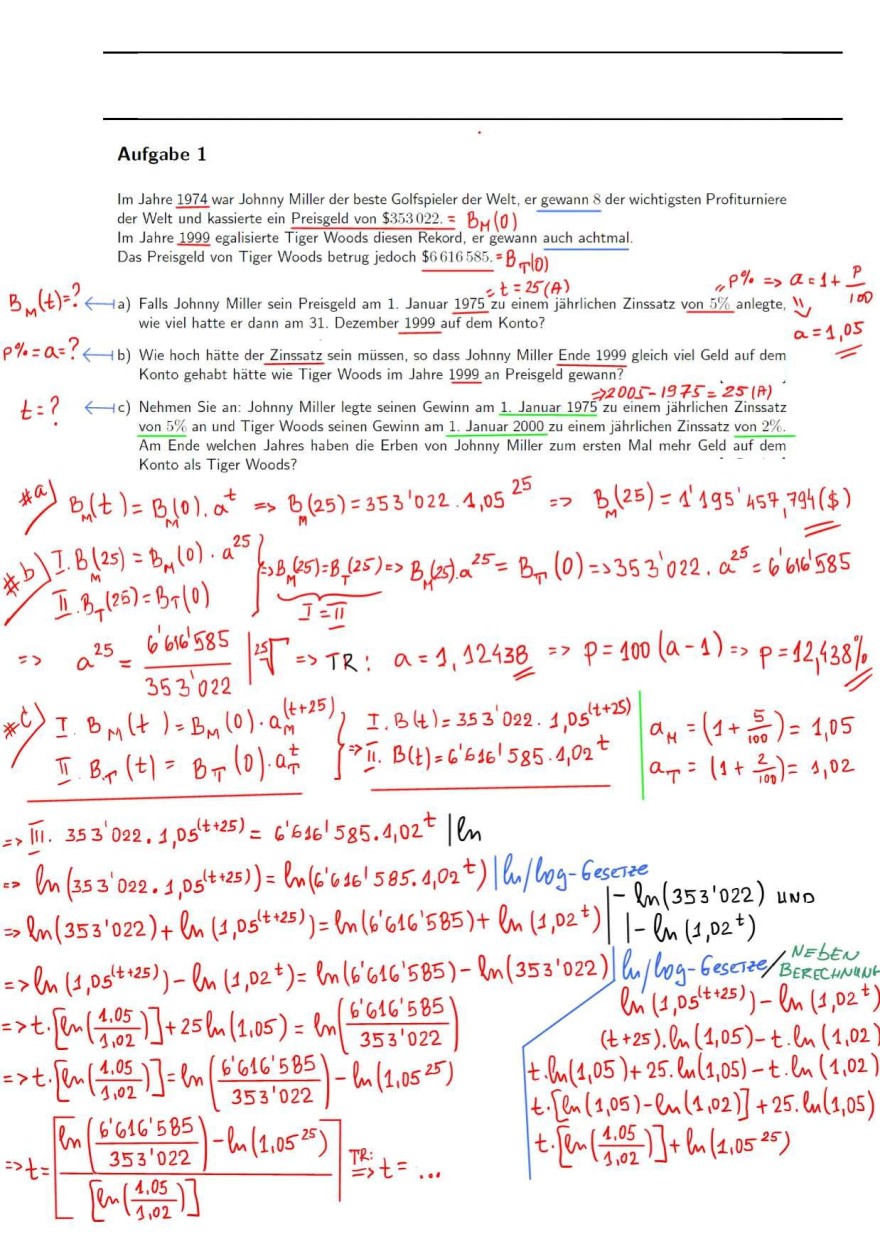 Aufgabe 1
Im Jahre 1974 war Johnny Miller der beste Golfspieler der Welt, er gewann 8 der wichtigsten Profiturniere
der Welt und kassierte ein Preisgeld von $353 022. = B_M(0)
Im Jahre 1999 egalisierte Tiger Woods diesen Rekord, er gewann auch achtmal.
Das Preisgeld von Tiger Woods betrug jedoch $6 616 585. = B_T(0)
= t = 25(A)
"p% => a = 1 + p/100
B_M(t) = ? a) Falls Johnny Miller sein Preisgeld am 1. Januar 1975 zu einem jährlichen Zinssatz von 5% anlegte,
wie viel hatte er dann am 31. Dezember 1999 auf dem Konto?
a = 1,05
p% = a = ? b) Wie hoch hätte der Zinssatz sein müssen, so dass Johnny Miller Ende 1999 gleich viel Geld auf dem
Konto gehabt hätte wie Tiger Woods im Jahre 1999 an Preisgeld gewann?
=> 2005 - 1975 = 25(A)
t = ? c) Nehmen Sie an: Johnny Miller legte seinen Gewinn am 1. Januar 1975 zu einem jährlichen Zinssatz
von 5% an und Tiger Woods seinen Gewinn am 1. Januar 2000 zu einem jährlichen Zinssatz von 2%.
Am Ende welchen Jahres haben die Erben von Johnny Miller zum ersten Mal mehr Geld auf dem
Konto als Tiger Woods?
#a) B_M(t) = B_M(0) . a^t => B_M(25) = 353'022 . 1,05^25 => B_M(25) = 1'195'457,794($)
#b) I. B_M(25) = B_M(0) . a^25
II. B_T(25) = B_T(0)
=> B_M(25) = B_T(25) => B_M(25) . a^25 = B_T(0) => 353'022 . a^25 = 6'616'585
I = II
=> a^25 = 6'616'585 / 353'022 | 25√ => TR: a = 1,12438 => p = 100(a - 1) => p = 12,438%
#c) I. B_M(t) = B_M(0) . a_M^(t+25)
II. B_T(t) = B_T(0) . a_T^t
=> I. B(t) = 353'022 . 1,05^(t+25)
II. B(t) = 6'616'585 . 1,02^t
a_M = (1 + 5/100) = 1,05
a_T = (1 + 2/100) = 1,02
=> III. 353'022 . 1,05^(t+25) = 6'616'585 . 1,02^t | ln
=> ln(353'022 . 1,05^(t+25)) = ln(6'616'585 . 1,02^t) | ln/log-Gesetze
=> ln(353'022) + ln(1,05^(t+25)) = ln(6'616'585) + ln(1,02^t) | - ln(353'022) UND
| - ln(1,02^t)
=> ln(1,05^(t+25)) - ln(1,02^t) = ln(6'616'585) - ln(353'022) | ln/log-Gesetze / NEBEN
BERECHNUNG
=> t . [ln(1.05/1,02)] + 25 ln(1,05) = ln(6'616'585 / 353'022)
=> t . [ln(1.05/1,02)] = ln(6'616'585 / 353'022) - ln(1,05^25)
=> t = [ln(6'616'585 / 353'022) - ln(1,05^25)] / [ln(1.05/1,02)] TR: => t = ...
ln(1,05^(t+25)) - ln(1,02^t)
(t+25) . ln(1,05) - t . ln(1,02)
t . ln(1,05) + 25 . ln(1,05) - t . ln(1,02)
t . [ln(1,05) - ln(1,02)] + 25 . ln(1,05)
t . [ln(1.05/1,02)] + ln(1,05^25)